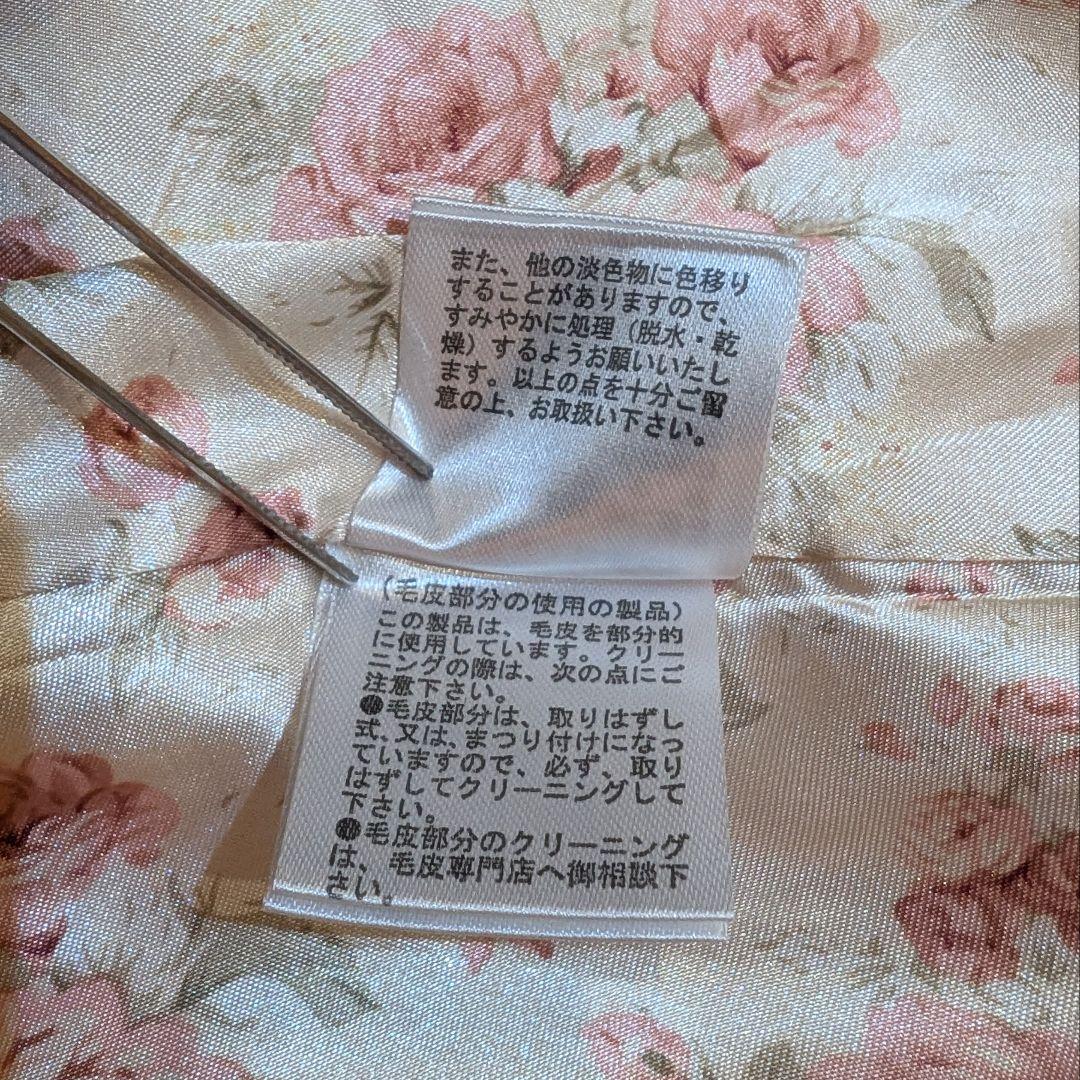 また、他の淡色物に色移り
することがありますので、
すみやかに処理（脱水・乾
燥）するようお願いいたし
ます。以上の点を十分ご留
意の上、お取扱い下さい。
（毛皮部分の使用の製品）
この製品は、毛皮を部分的
に使用しています。クリー
ニングの際は、次の点にご
注意下さい。
●毛皮部分は、取りはずし
式、又は、まつり付けになっ
ていますので、必ず、取り
はずしてクリーニングして
下さい。
●毛皮部分のクリーニング
は、毛皮専門店へ御相談下
さい。